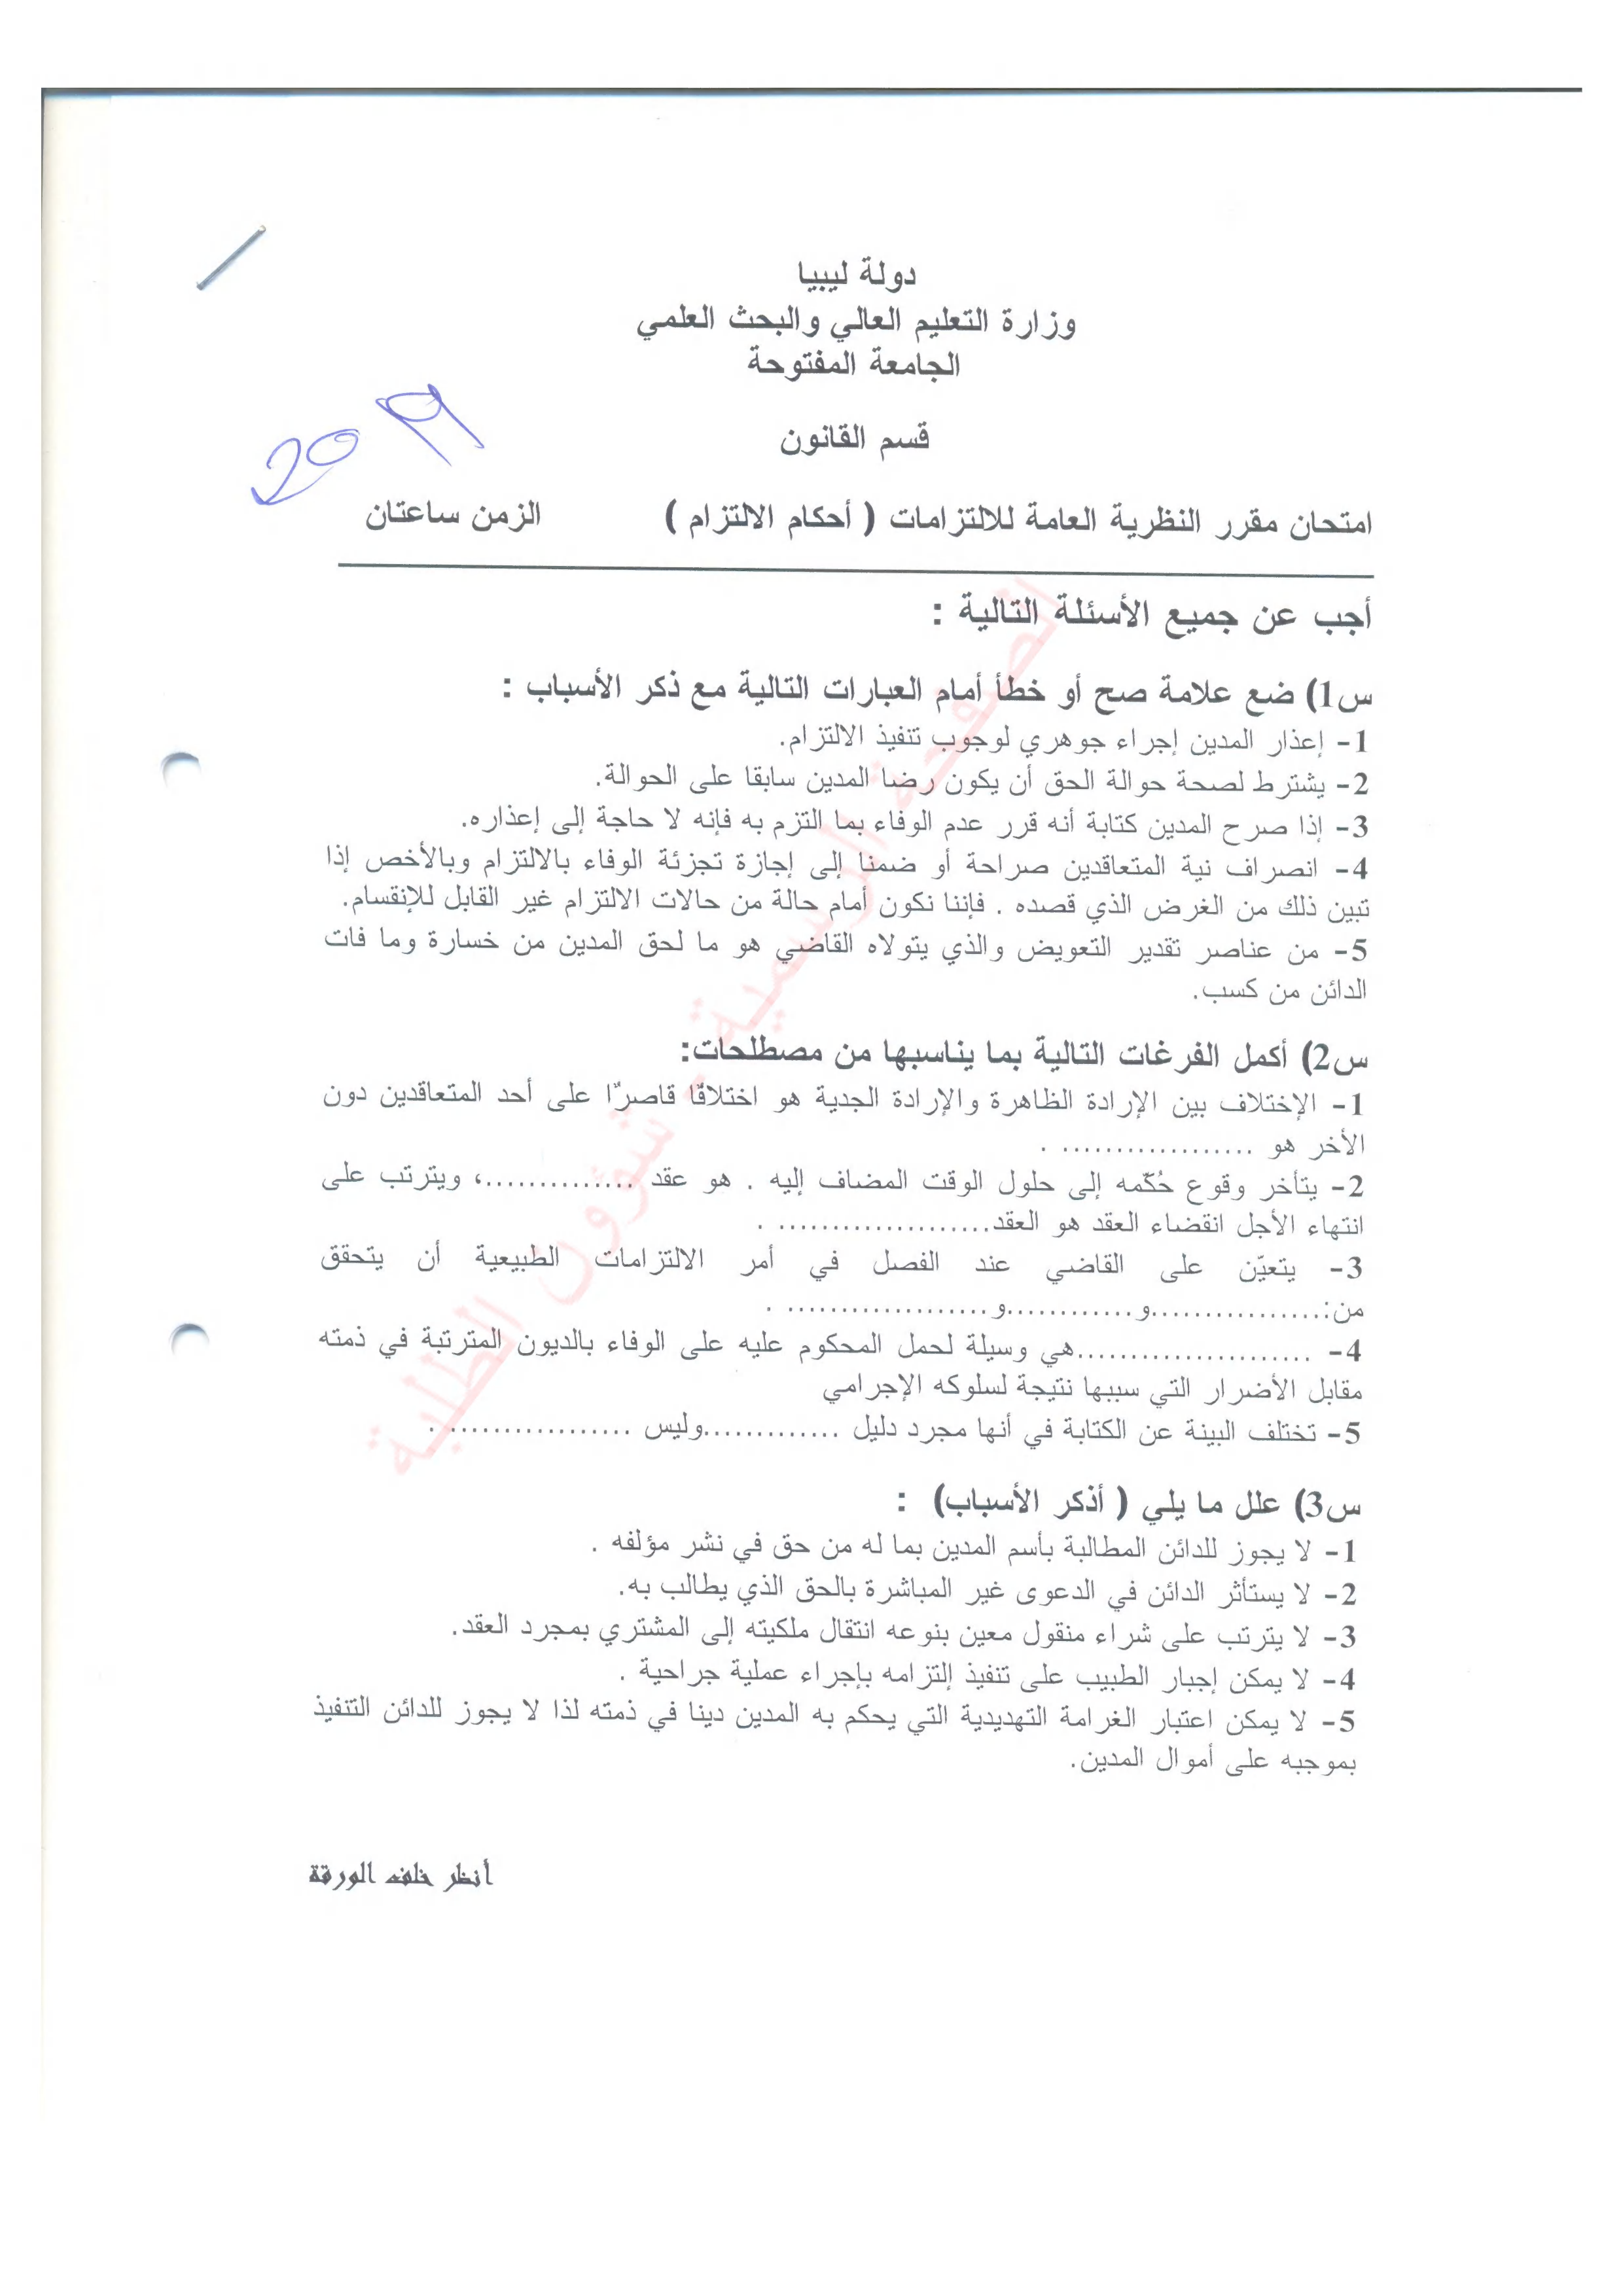 دولة ليبيا
وزارة التعليم العالي والبحث العلمي
الجامعة المفتوحة
قسم القانون
امتحان مقرر النظرية العامة للالتزامات ( أحكام الالتزام ) الزمن ساعتان
أجب عن جميع الأسئلة التالية :
س1) ضع علامة صح أو خطأ أمام العبارات التالية مع ذكر الأسباب :
1- إعذار المدين إجراء جوهري لوجوب تنفيذ الالتزام.
2- يشترط لصحة حوالة الحق أن يكون رضا المدين سابقا على الحوالة.
3- إذا صرح المدين كتابة أنه قرر عدم الوفاء بما التزم به فإنه لا حاجة إلى إعذاره.
4- انصراف نية المتعاقدين صراحة أو ضمنا إلى إجازة تجزئة الوفاء بالالتزام وبالأخص إذا
تبين ذلك من الغرض الذي قصده . فإننا نكون أمام حالة من حالات الالتزام غير القابل للإنقسام.
5- من عناصر تقدير التعويض والذي يتولاه القاضي هو ما لحق المدين من خسارة وما فات
الدائن من كسب.
س2) أكمل الفرغات التالية بما يناسبها من مصطلحات:
1- الإختلاف بين الإرادة الظاهرة والإرادة الجدية هو اختلافًا قاصرًا على أحد المتعاقدين دون
الأخر هو .................. .
2- يتأخر وقوع حُكّمه إلى حلول الوقت المضاف إليه . هو عقد ..............، ويترتب على
انتهاء الأجل انقضاء العقد هو العقد.................... .
3- يتعيّن على القاضي عند الفصل في أمر الالتزامات الطبيعية أن يتحقق
من:................و............و................... .
4- ......................هي وسيلة لحمل المحكوم عليه على الوفاء بالديون المترتبة في ذمته
مقابل الأضرار التي سببها نتيجة لسلوكه الإجرامي
5- تختلف البينة عن الكتابة في أنها مجرد دليل .............وليس ................. .
س3) علل ما يلي ( أذكر الأسباب) :
1- لا يجوز للدائن المطالبة بأسم المدين بما له من حق في نشر مؤلفه .
2- لا يستأثر الدائن في الدعوى غير المباشرة بالحق الذي يطالب به.
3- لا يترتب على شراء منقول معين بنوعه انتقال ملكيته إلى المشتري بمجرد العقد.
4- لا يمكن إجبار الطبيب على تنفيذ إلتزامه بإجراء عملية جراحية .
5- لا يمكن اعتبار الغرامة التهديدية التي يحكم به المدين دينا في ذمته لذا لا يجوز للدائن التنفيذ
بموجبه على أموال المدين.
أنظر خلف الورقة
الصفحة الرسمية - شؤون الطلبة